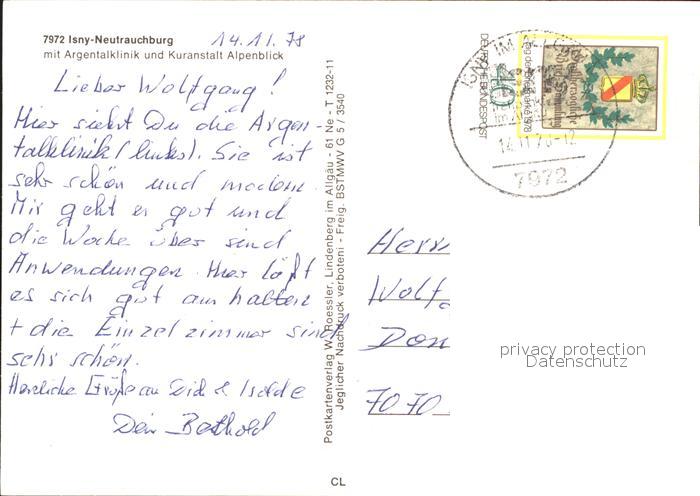 7972 Isny-Neutrauchburg
mit Argentalklinik und Kuranstalt Alpenblick
14.11.78
Lieber Wolfgang!
Hier siehst Du die Argen-
talklinik (links). Sie ist
sehr schön und modern.
Mir geht es gut und
die Woche über sind
Anwendungen. Hier läßt
es sich gut aushalten
+ die Einzelzimmer sind
sehr schön.
Herzliche Grüße an Dich & Isolde
Dein Berthold
Postkartenverlag W. Roessler, Lindenberg im Allgäu - 61 Ne - T 1232-11
Jeglicher Nachdruck verboten! - Freig. BSTMWV G 5 / 3540
CL
ISNY IM ALLGÄU
14.11.78-12
7972
DEUTSCHE BUNDESPOST
40
Tag der Briefmarke 1978
Herrn
Wolfg
Don
7070
privacy protection
Datenschutz